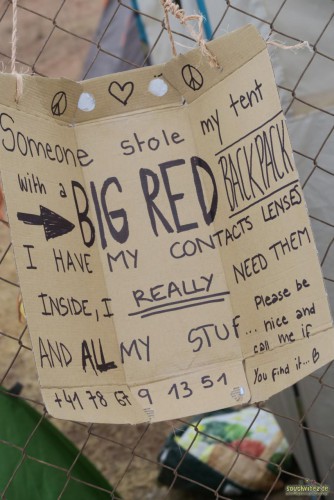 Someone stole my tent
with a BIG RED BACKPACK
I HAVE MY CONTACTS LENSES
INSIDE, I REALLY NEED THEM
AND ALL MY STUF... Please be
nice and
call me if
You find it...
+41 78 67 9 13 51